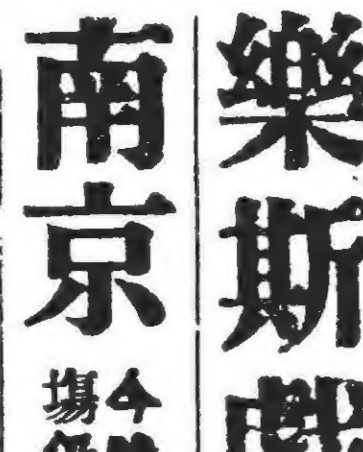 樂斯
南京
今
場